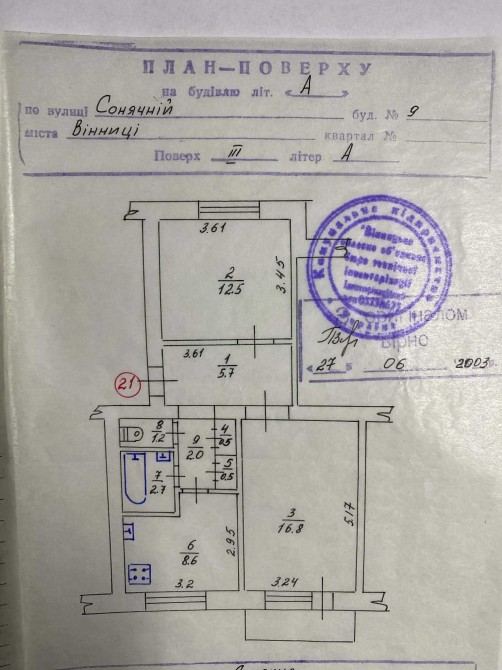 ПЛАН—ПОВЕРХУ
на будівлю літ. „А"
по вулиці Сонячній буд. № 9
міста Вінниці квартал №
Поверх III літер А
Комунальне підприємство
"Вінницьке
бюро технічної
інвентаризації
Україна
оригіналом
вірно
«27» 06 2003р.
3.61
2
12.5
3.45
3.61
1
5.7
21
8
1.2
9
2.0
4
0.5
5
0.5
7
2.7
3
16.8
5.17
6
8.6
2.95
3.2
3.24